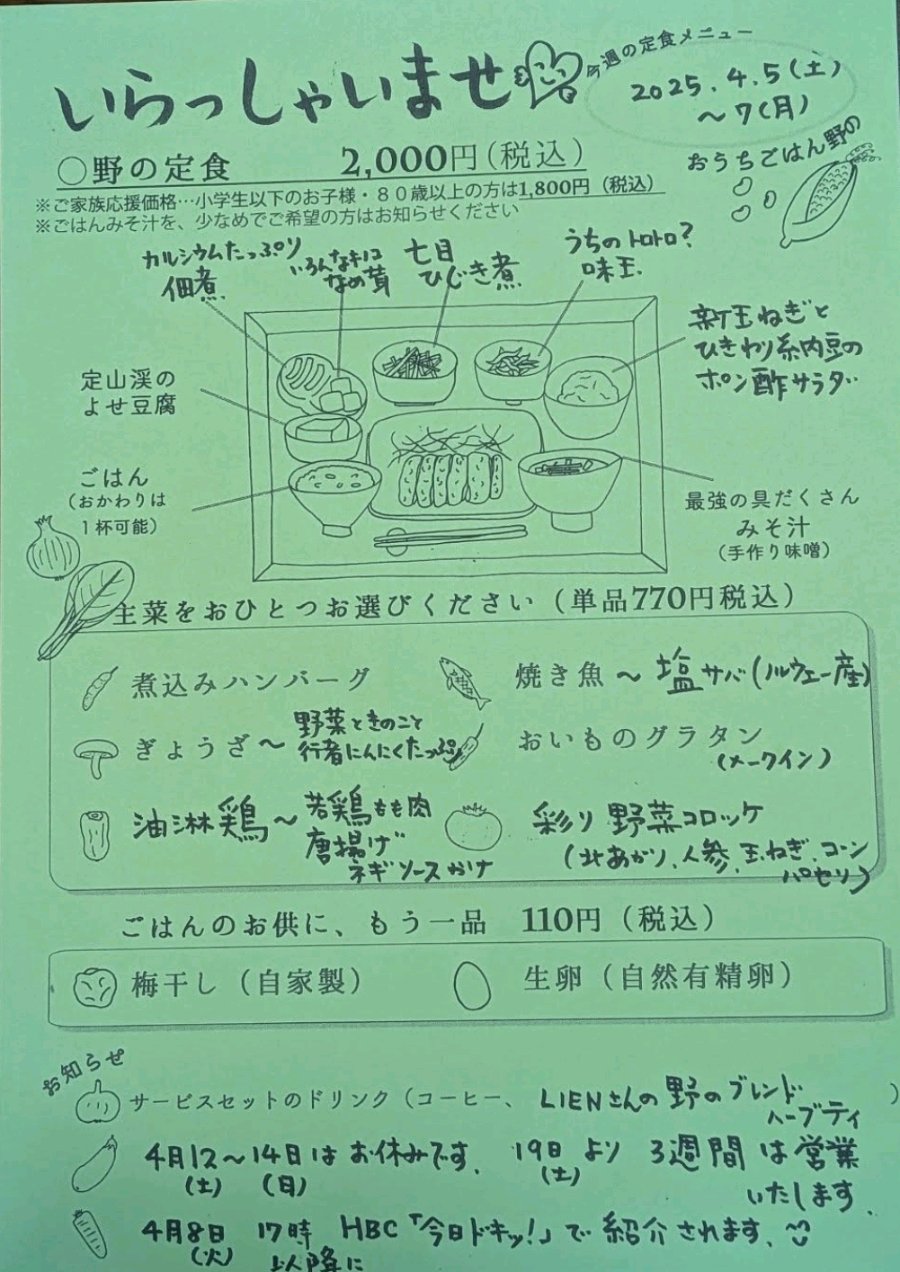 いらっしゃいませ
今週の定食メニュー
2025.4.5(土)
～7(月)
おうちごはん野の
〇野の定食 2,000円(税込)
※ご家族応援価格…小学生以下のお子様・８０歳以上の方は1,800円（税込）
※ごはんみそ汁を、少なめでご希望の方はお知らせください
カルシウムたっぷり
佃煮
いろんなキノコ
なめ茸
七目
ひじき煮
うちのトロトロ?
味玉
新玉ねぎと
ひきわり納豆の
ポン酢サラダ
定山渓の
よせ豆腐
ごはん
（おかわりは
１杯可能）
最強の具だくさん
みそ汁
（手作り味噌）
主菜をおひとつお選びください（単品770円税込）
煮込みハンバーグ
焼き魚～塩サバ(ノルウェー産)
ぎょうざ～野菜ときのこと
行者にんにくたっぷり
おいものグラタン
(メークイン)
油淋鶏～若鶏もも肉
唐揚げ
ネギソースかけ
彩り野菜コロッケ
(北あかり、人参、玉ねぎ、コーン
パセリ)
ごはんのお供に、もう一品 110円（税込）
梅干し（自家製）
生卵（自然有精卵）
お知らせ
サービスセットのドリンク（コーヒー、LIENさんの野のブレンド
ハーブティ）
4月12～14日はお休みです。19日より3週間は営業
(土) (日) (土)
いたします
4月8日 17時 HBC「今日ドキッ!」で紹介されます。
(火) 以降に